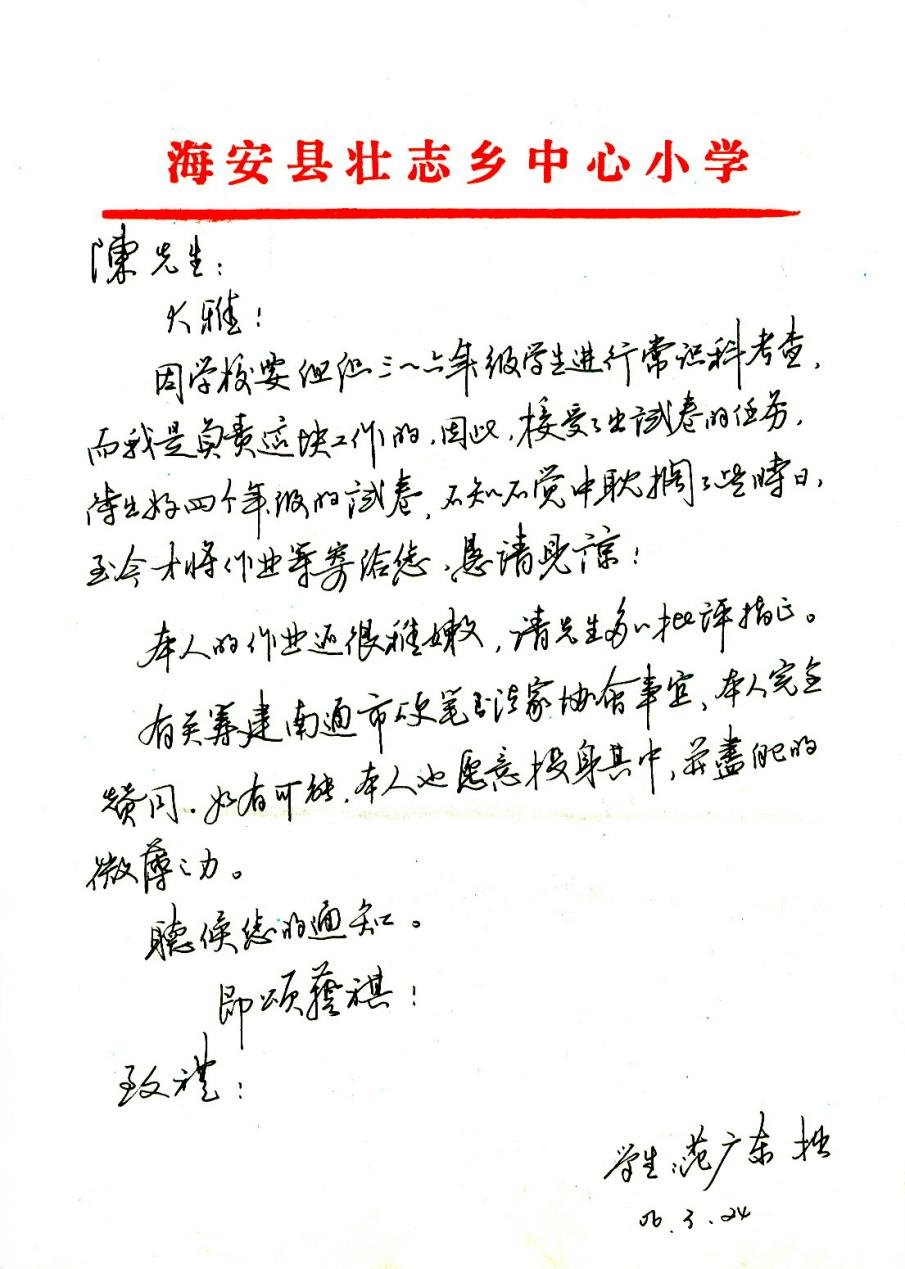 海安县壮志乡中心小学
陳先生：
大雅！
因学校要组织三~六年级学生进行常识科考查，
而我是负责这块工作的，因此，接受了出试卷的任务，
待出好四个年级的试卷，不知不觉中耽搁了些時日，
至今才将作业等寄给您，恳请見諒！
本人的作业还很稚嫩，请先生多以批评指正。
有关筹建南通市硬笔书法家协会事宜，本人完全
赞同。如有可能，本人也愿意投身其中，并盡自己的
微薄之力。
聽候您的通知。
即颂藝祺！
致礼！
学生：范广东 拙
06.3.24